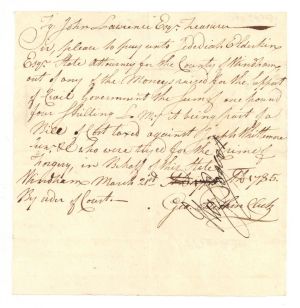 To John Lawrence Esqr. Treasurer
Sir, please to pay unto Jedediah Elderkin
Esqr. State Attorney for the County of Windham
out of any of the Money raised for the Support
of Civil Government the Sum of one pound
four Shillings L. M. it being part of a
Bill of Cost taxed against Whittemore
who were tried for the Crime of
Forgery, in Behalf of this State
Windham March 23rd 1785.
By order of Court Clerk